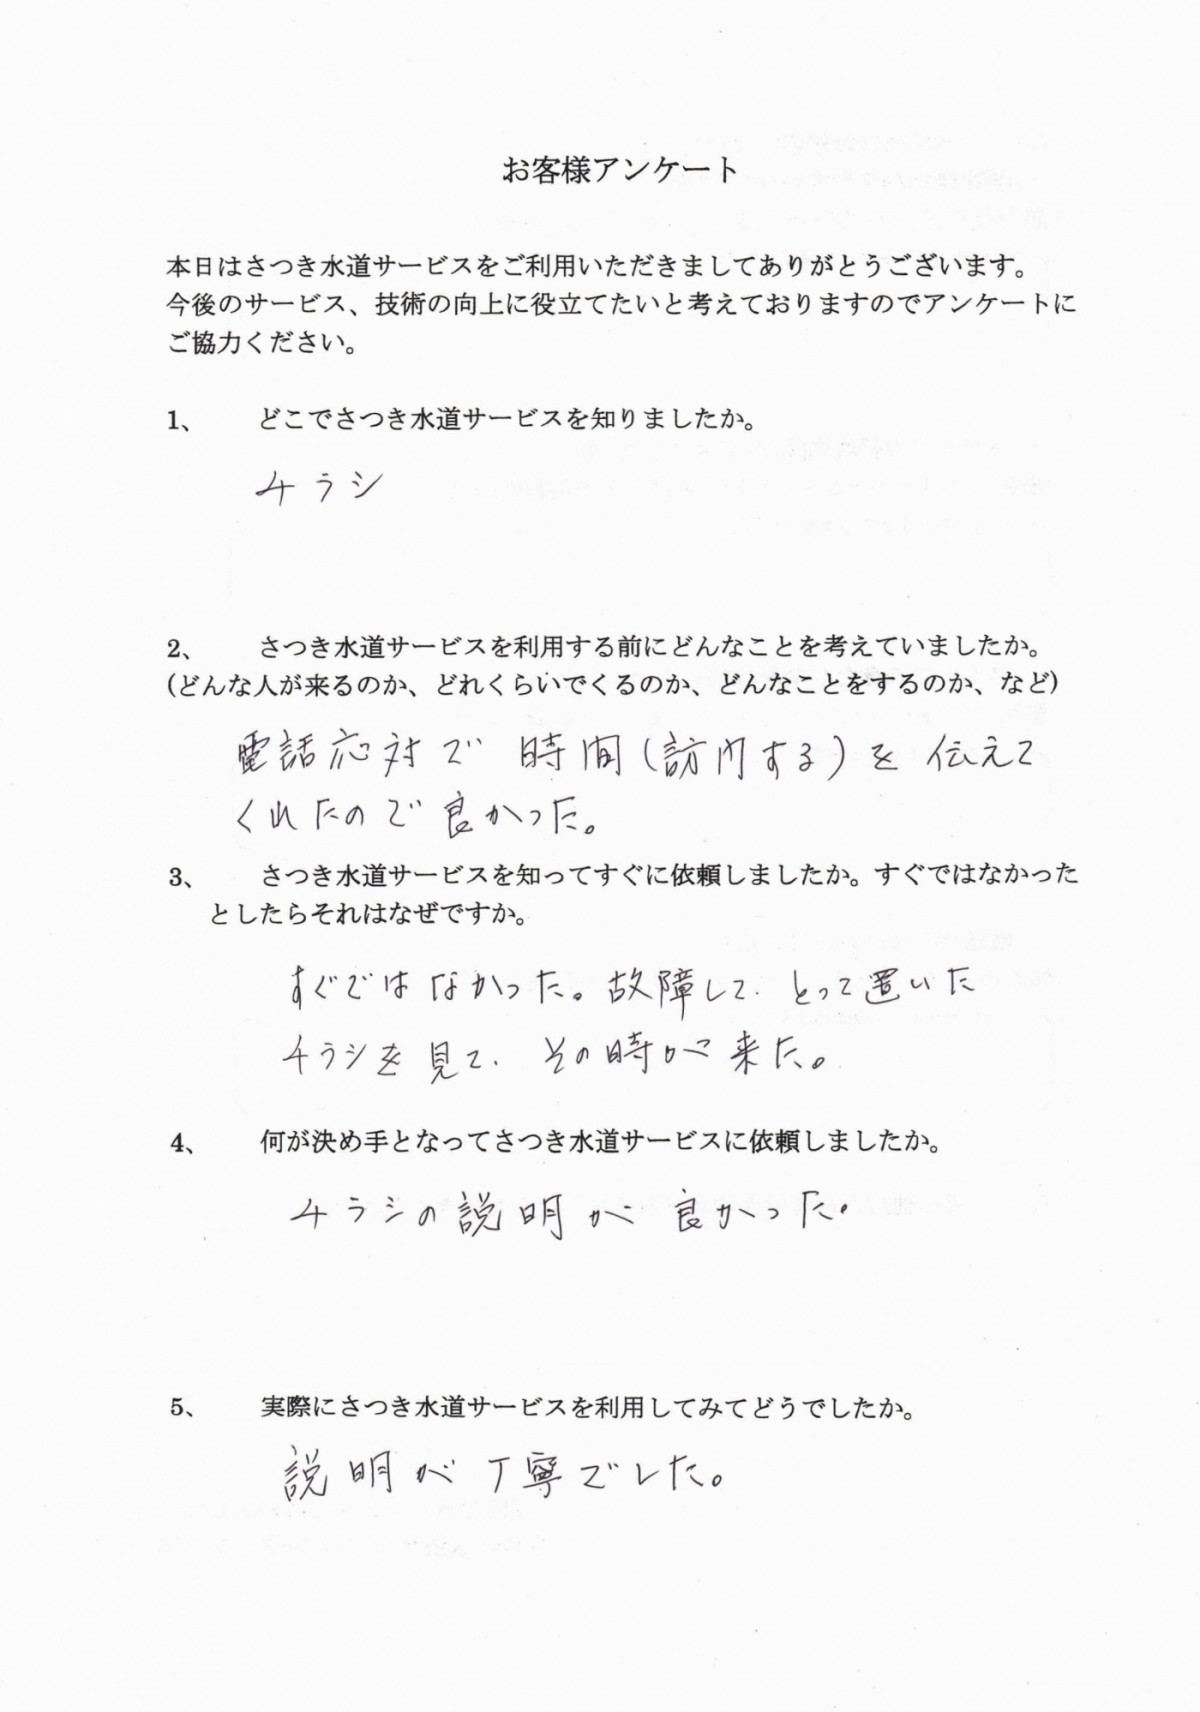 お客様アンケート
本日はさつき水道サービスをご利用いただきましてありがとうございます。
今後のサービス、技術の向上に役立てたいと考えておりますのでアンケートに
ご協力ください。
1、 どこでさつき水道サービスを知りましたか。
チラシ
2、 さつき水道サービスを利用する前にどんなことを考えていましたか。
(どんな人が来るのか、どれくらいでくるのか、どんなことをするのか、など)
電話応対で時間(訪門する)を伝えて
くれたので良かった。
3、 さつき水道サービスを知ってすぐに依頼しましたか。すぐではなかった
としたらそれはなぜですか。
すぐではなかった。故障して、とって置いた
チラシを見て、その時が来た。
4、 何が決め手となってさつき水道サービスに依頼しましたか。
チラシの説明が良かった。
5、 実際にさつき水道サービスを利用してみてどうでしたか。
説明が丁寧でした。